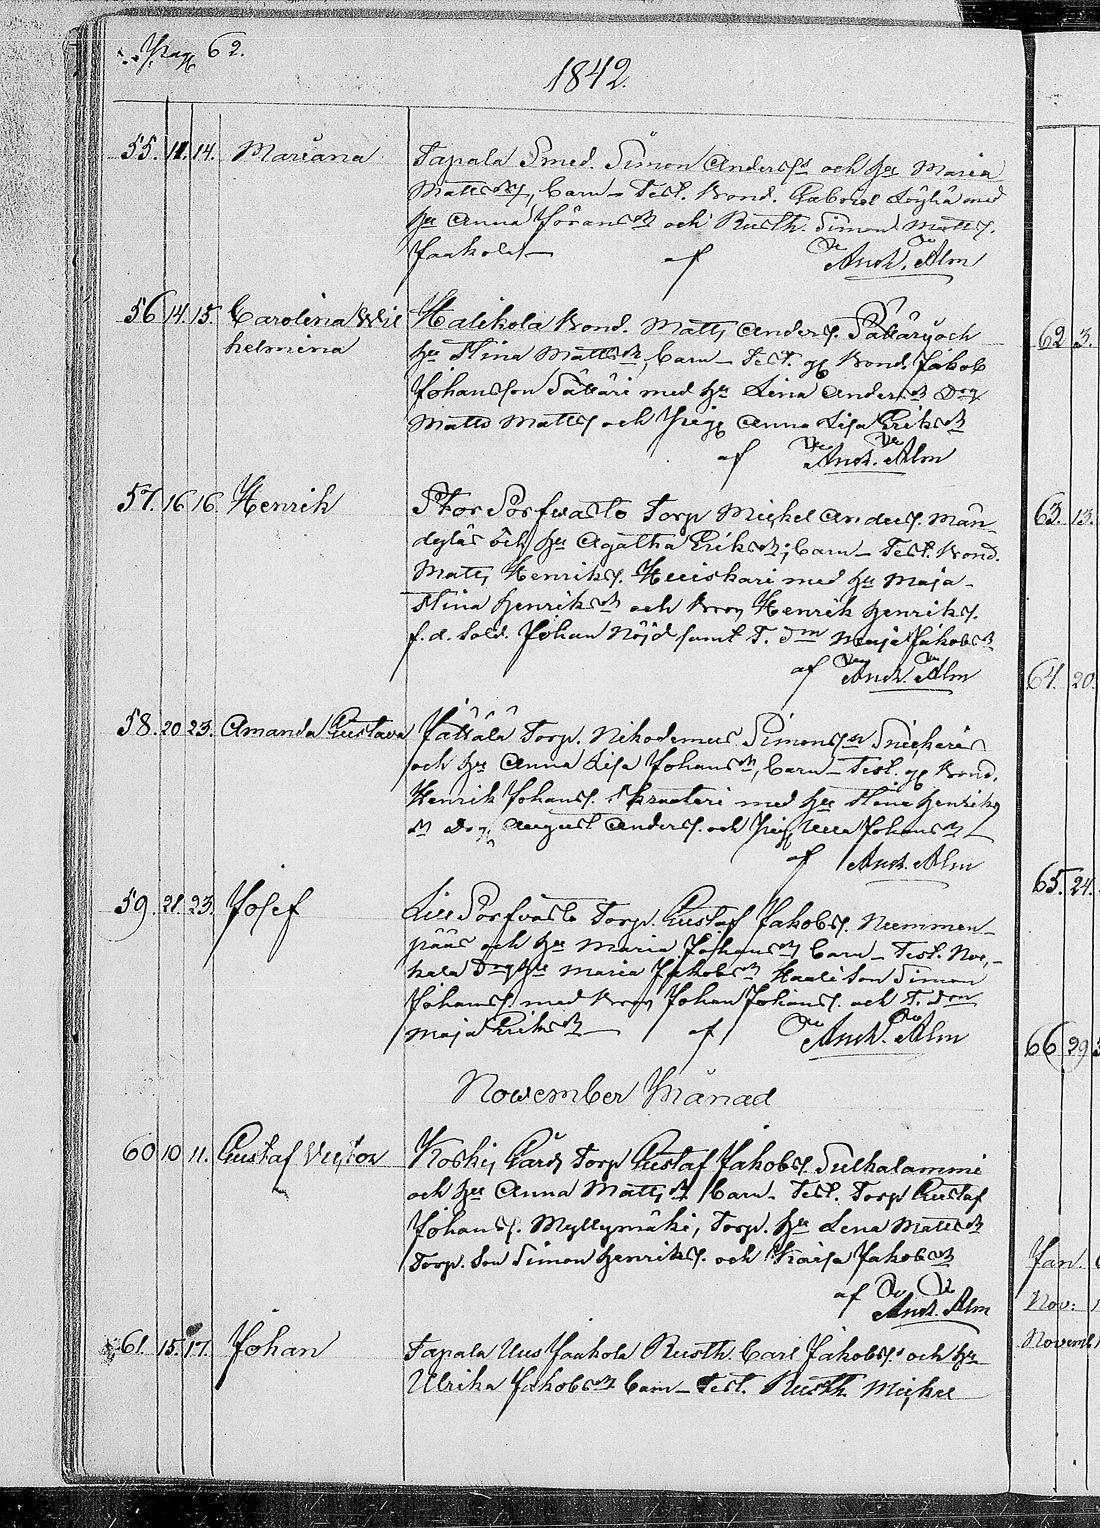 Pag 62.
1842.
55. 11. 14. Mariana Tapala Smed. Simon Anders och hu Maria
Matts Barn – Test. Bond. Gabriel Löylä med
hu Anna Jörans och Rusth. Simon Matts.
Jaakola – af And. Alm
56 14. 15. Carolina Wil Halikola Bond. Matts Anders. Pättäri och
helmina hu Stina Matts Barn – Test. Bond. Jakob
Johansson Pättäri med hu Lena Anders Dr
Matts Matts och Pig Anna Lisa Eriks
af And. Alm
57. 16 16. Henrik Stor Sorfwasto Torp Michel Anders. Män
och hu Agatha Eriks; Barn – Test. Bond.
Matts Henriks. Heiiskari med hu Maja
Stina Henriks och Henrik Henriks.
f. d. Sold. Johan Nöjd samt T. Maja Jakobs
af And. Alm
58. 20 23. Amanda Gustava Jättälä Torp. Nikodemus Simons
och hu Anna Lisa Johans Barn – Test. Bond.
Henrik Johans. Skraateri med hu Stina Henriks
August Anders. och Pig Ulla Johans
af And. Alm
59. 21. 23. Josef Lill Sorfwasto Torp. Gustaf Jakobs. Nummen
pää och hu Maria Johans Barn – Test. Nor
kala hu Maria Jakobs Son Simon
Johans med Johan Johans. och T. Dm
Maja Eriks – af And. Alm
November Månad
60 10 11. Gustaf Victor Koskis Gårds Torp Gustaf Jakobs. Sulkalammi
och hu Anna Matts Barn – Test. Torp Gustaf
Johans. Myllymäki, Torp. hu Lena Matts
Torp. Son Simon Henriks. och Kaisa Jakobs
af And. Alm
61. 15. 17. Johan Tapala Uus Jaakola Rusth. Carl Jakobs och hu
Ulrika Jakobs Barn – Test. Rusth Michel
62 3.
63. 13.
64. 20.
65. 24.
66 29
Jan.
Nov:
Novemb